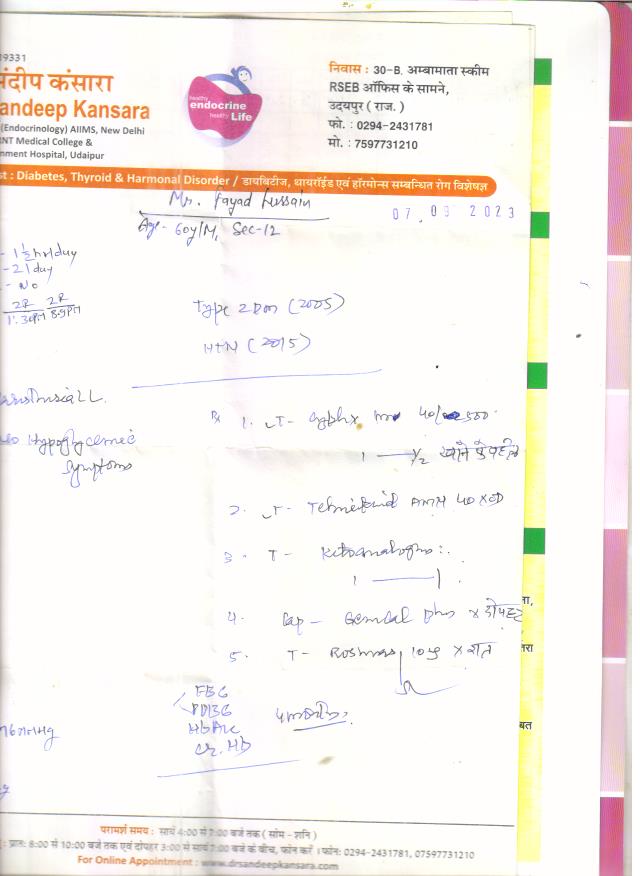 9331
निवास : 30-B. अम्बामाता स्कीम
RSEB ऑफिस के सामने,
उदयपुर ( राज. )
फो. : 0294-2431781
मो. : 7597731210
ंदीप कंसारा
andeep Kansara
(Endocrinology) AIIMS, New Delhi
NT Medical College &
nment Hospital, Udaipur
healthy
endocrine
healthy Life
st : Diabetes, Thyroid & Harmonal Disorder / डायबिटीज, थायरॉईड एवं हॉरमोन्स सम्बन्धित रोग विशेषज्ञ
Mr. Fayad Hussain
07 09 2023
Age - 60y/M, Sec-12
- 1½ hr/day
- 2 l day
- No
2R 2R
1:30PM 8-9PM
Type 2 DM (2005)
HTN (2015)
Rx 1. T- 40/ 500
1 — ½ खाने से पहले
Hypoglycemic
Symptoms
2. T- AM 40 X OD
3. T-
1 — 1
4. Cap - Plus X दोपहर
5. T- 10mg X रात
FBG
PPBG
HbA1c
Cr. Hb
ता,
तरा
बत
परामर्श समय : सायं 4:00 से 7:00 बजे तक ( सोम - शनि )
: प्रात: 8:00 से 10:00 बजे तक एवं दोपहर 3:00 से सायं 7:00 बजे के बीच, फोन करें । फोन: 0294-2431781, 07597731210
For Online Appointment : www.drsandeepkansara.com